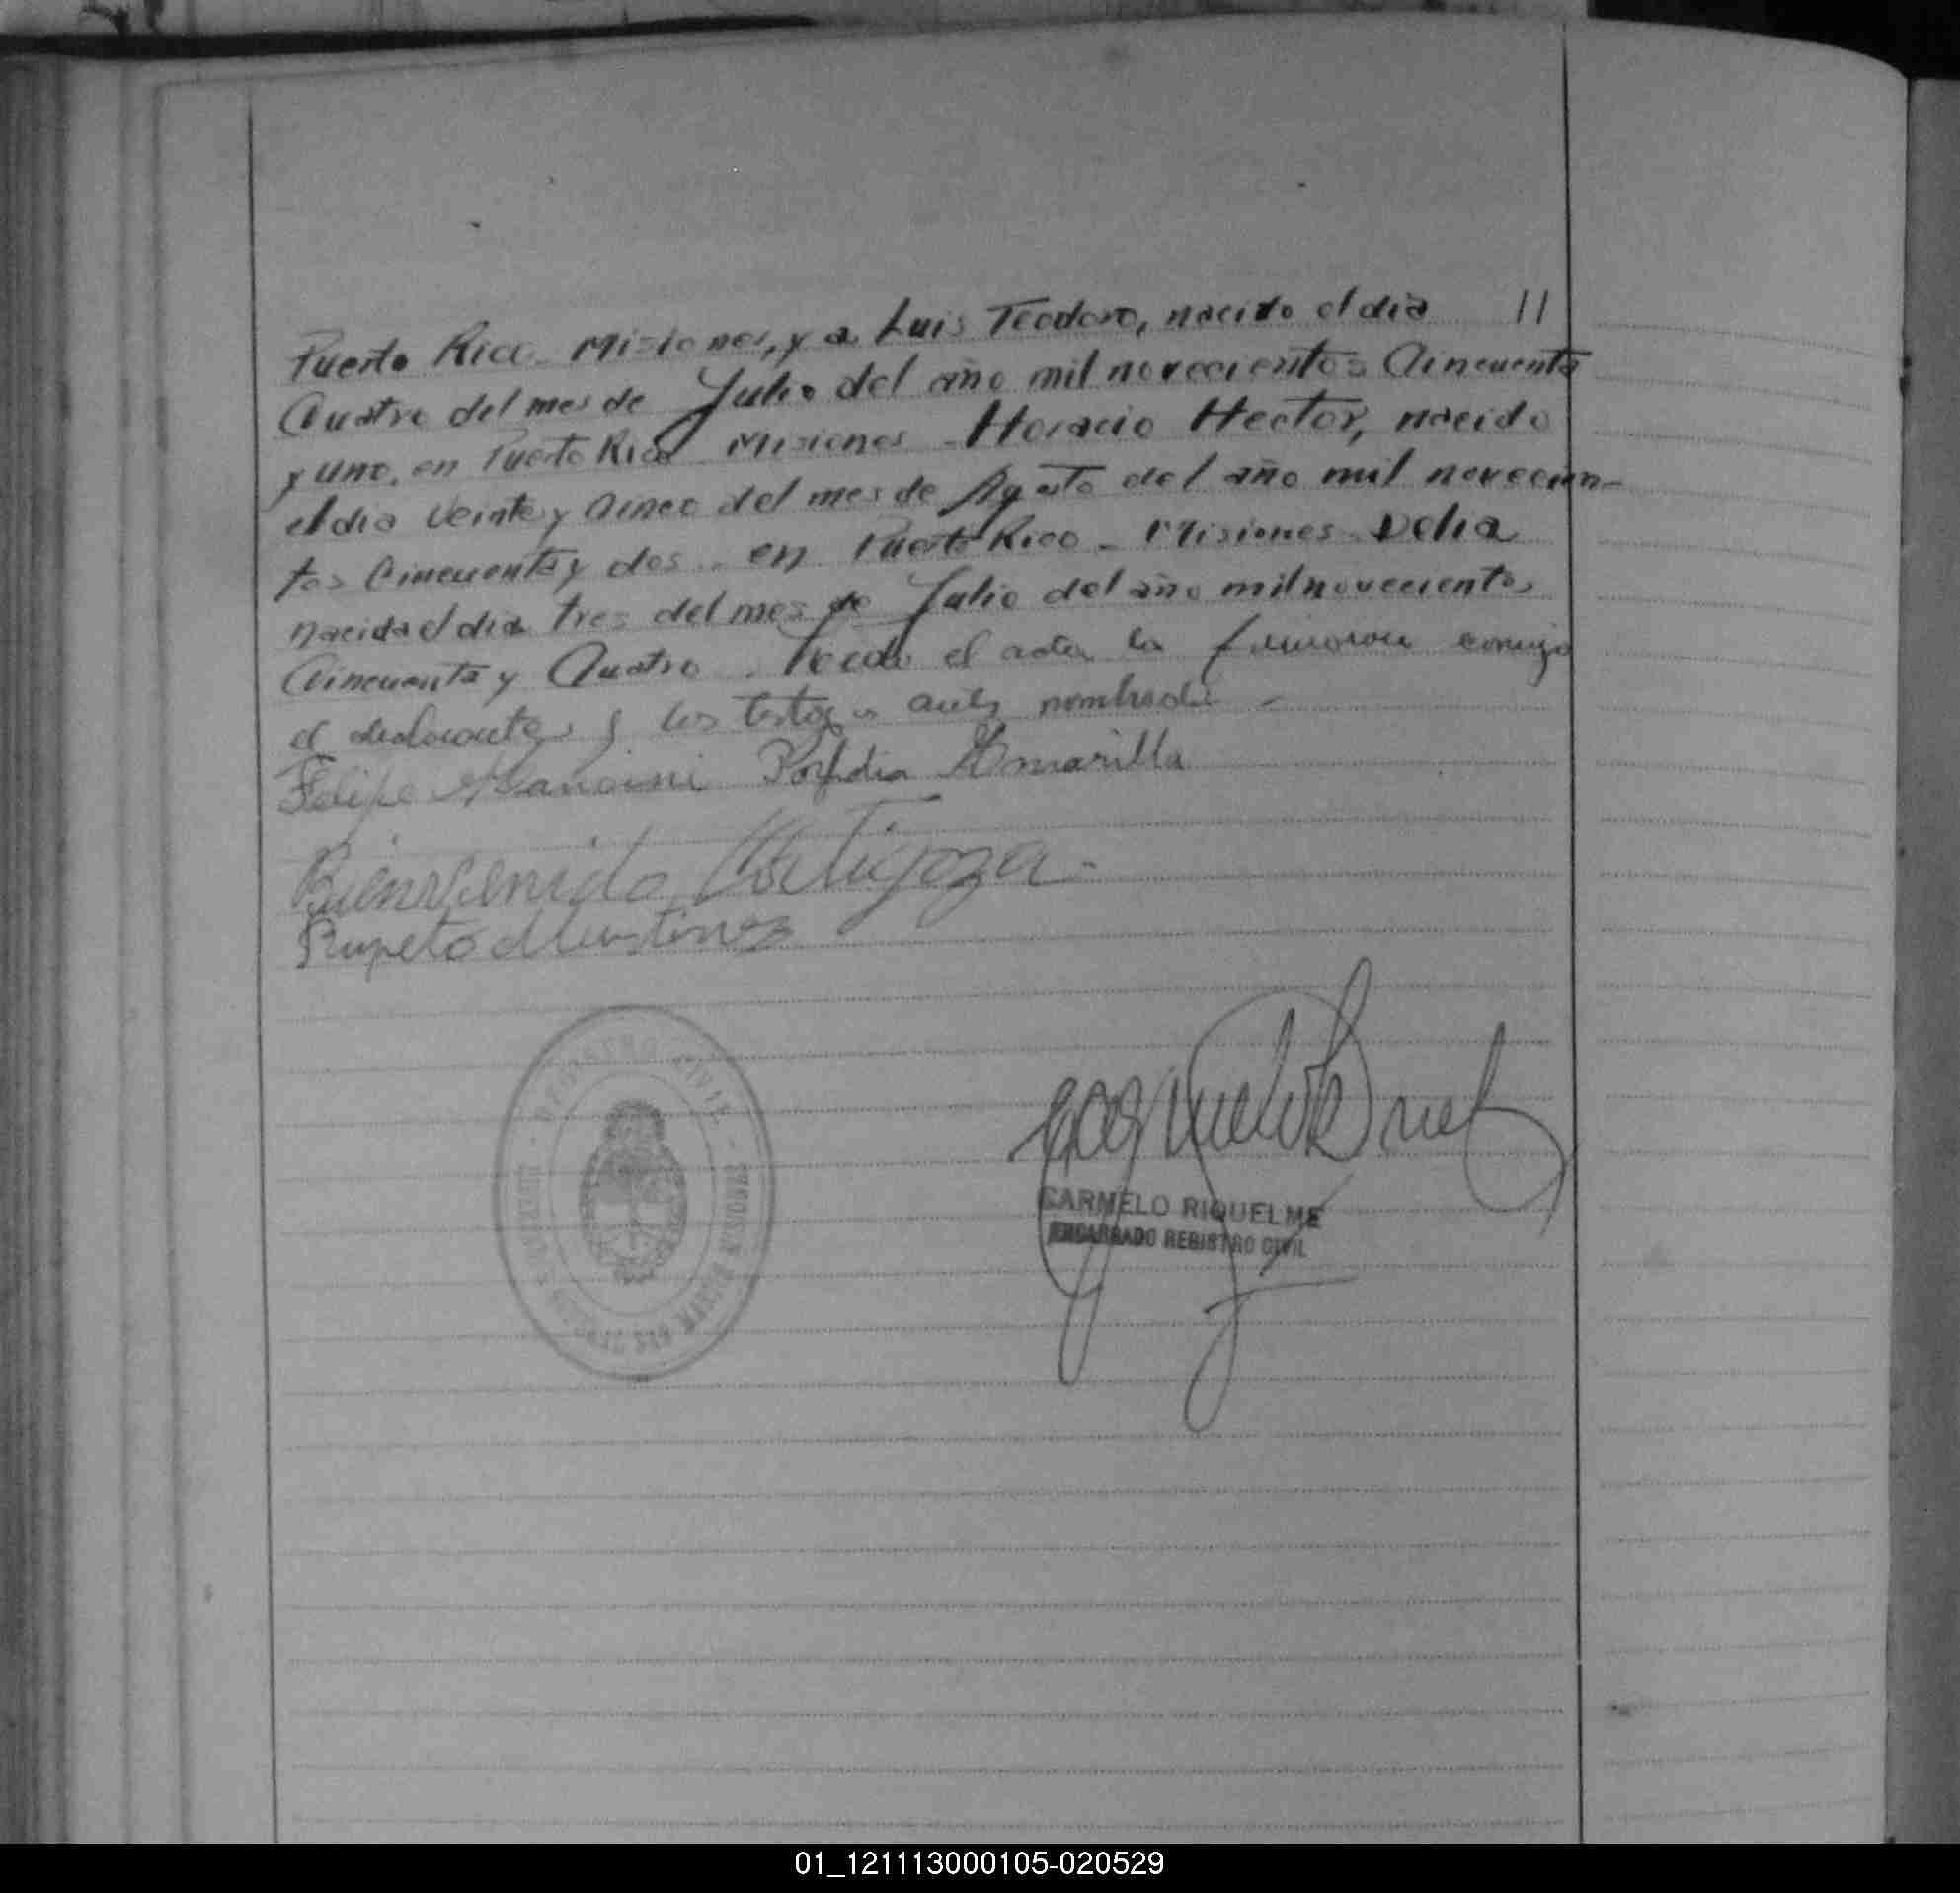 11
Puerto Rico Misiones, y a Luis Teodoro, nacido el dia
Cuatro del mes de Julio del año mil novecientos Cincuenta
y uno, en Puerto Rico Misiones - Horacio Hector, nacido
el dia Veinte y Cinco del mes de Agosto del año mil novecien-
tos Cincuenta y dos - en Puerto Rico - Misiones - Delia
nacida el dia tres del mes de Julio del año mil novecientos
Cincuenta y Cuatro - el acta la firmaron conmigo
el declarante y los testigos antes nombrados -
Felipe Mancini Porfidia Amarilla
Bienvenido
Ruperto Martinez
REGISTRO CIVIL
CARMELO RIQUELME
ENCARGADO REGISTRO CIVIL
01_121113000105-020529